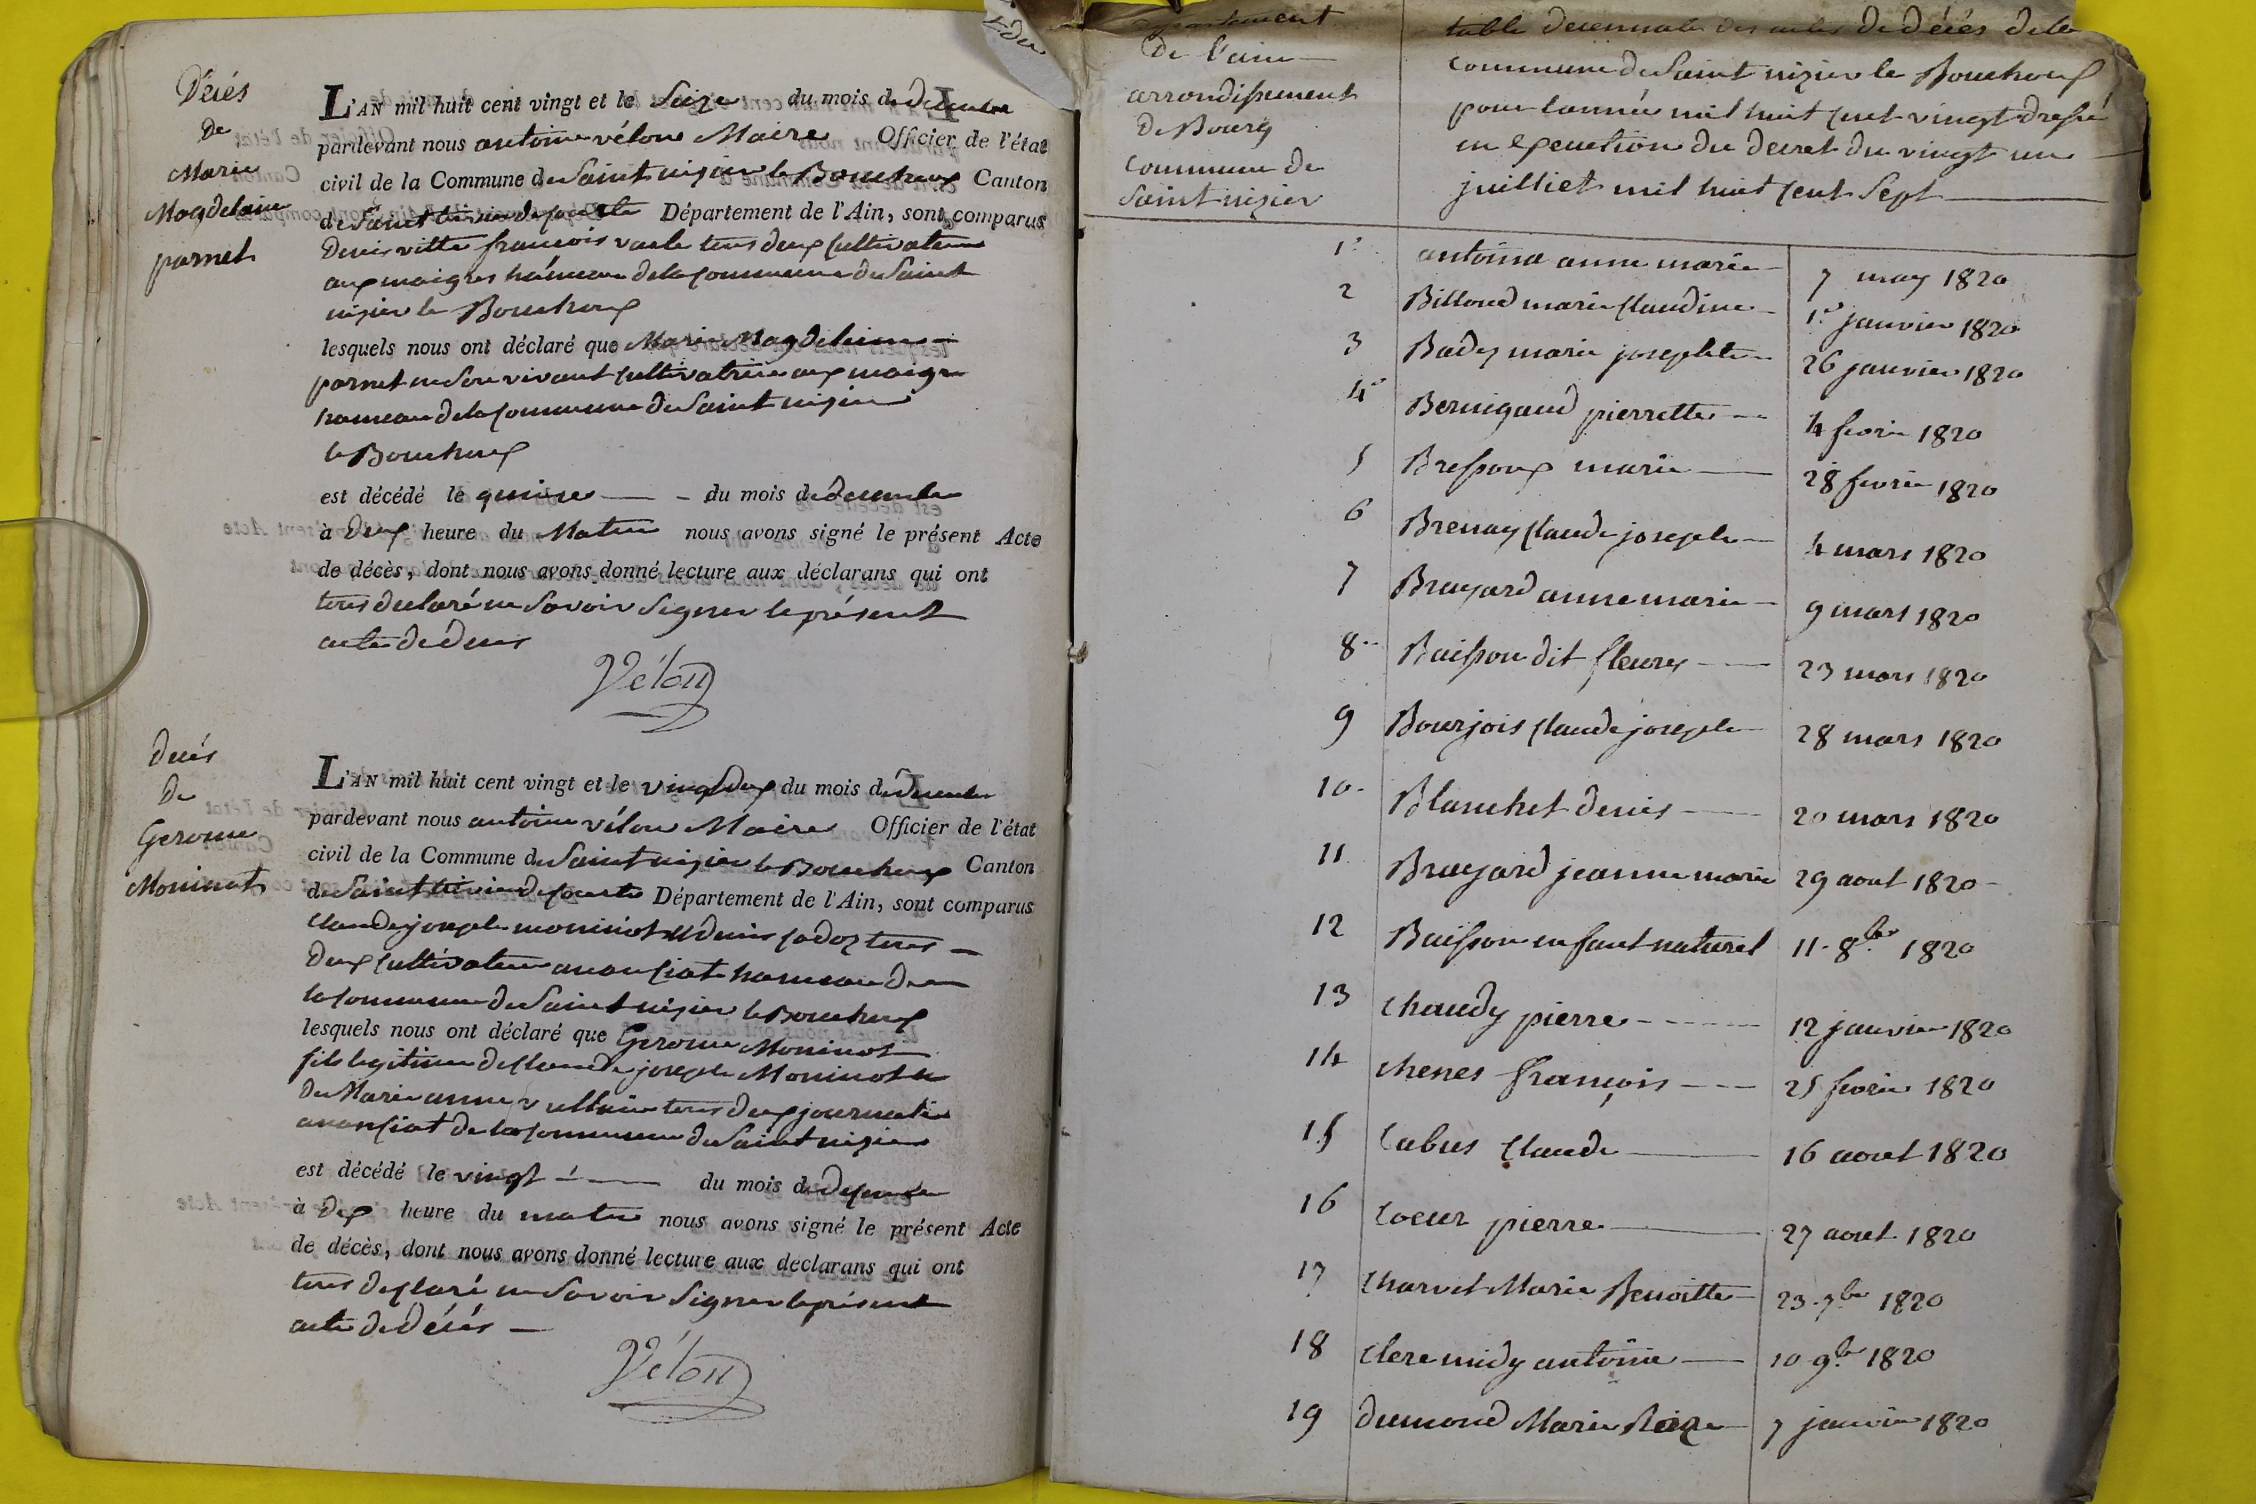 Décés
De
Marie
Magdelaine
parnet
L'AN mil huit cent vingt et le Seize du mois de décembre
pardevant nous antoine vélon Maire Officier de l'état
civil de la Commune de Saint nizier le Bouchoux Canton
de Saint trivier de courte Département de l'Ain, sont comparus
Denis villet françois vaule tous deux cultivateur
aux maigres hameau de la commune de Saint
nizier le Bouchoux
lesquels nous ont déclaré que Marie Magdelaine
parnet en Son vivant cultivatrice aux maigre
hameau de la commune de Saint nizier
le Bouchoux
est décédé le quinze du mois de décembre
à Deux heure du Matin nous avons signé le présent Acte
de décès, dont nous avons donné lecture aux déclarans qui ont
tous déclaré ne Savoir Signer le présent
acte de décés
Vélon
Décés
De
Gerome
Moninot
L'AN mil huit cent vingt et le vingt deux du mois de décembre
pardevant nous antoine vélon Maire Officier de l'état
civil de la Commune de Saint nizier le Bouchoux Canton
de Saint trivier de courte Département de l'Ain, sont comparus
Claude joseph moninot et denis cadoz tous
deux cultivateur a nonciat hameau de
la commune de Saint nizier le Bouchoux
lesquels nous ont déclaré que Gerome Moninot
fils legitime de Claude joseph Moninot et
de Marie anne vulliein tous deux journalier
a nonciat de la commune de Saint nizier
est décédé le vingt du mois de décembre
à Dex heure du matin nous avons signé le présent Acte
de décès, dont nous avons donné lecture aux déclarans qui ont
tous declaré ne Savoir Signer le présent
acte de décés
Vélon
Departement
De l'ain
arrondissement
De Bourg
Commune de
Saint nizier
table decennale des actes de décés de la
commune de Saint nizier le Bouchoux
pour l'année mil huit cent vingt dressé
en execution du decret du vingt un
juilliet mil huit cent Sept
1 antoina anne marie 7 may 1820
2 Billoud marie Claudine 1er janvier 1820
3 Bady marie josephte 26 janvier 1820
4 Bernigaud pierrette 4 fevrier 1820
5 Bressoux marie 28 fevrier 1820
6 Brenay Claude joseph 4 mars 1820
7 Brayard anne marie 9 mars 1820
8 Buisson dit fleury 23 mars 1820
9 Bourjois Claude joseph 28 mars 1820
10 Blanchet denis 20 mars 1820
11 Brayard jeanne marie 29 aout 1820
12 Buisson enfant naturel 11 8bre 1820
13 Chaudy pierre 12 janvier 1820
14 chenes françois 25 fevrier 1820
15 Cabus Claude 16 aout 1820
16 Coeur pierre 27 aout 1820
17 Charvet Marie Benoitte 23 7bre 1820
18 Clere midy antoine 10 9bre 1820
19 Dumond Marie 7 janvier 1820